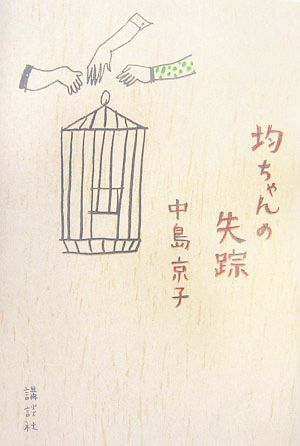 均ちゃんの
失踪
中島京子
講談社